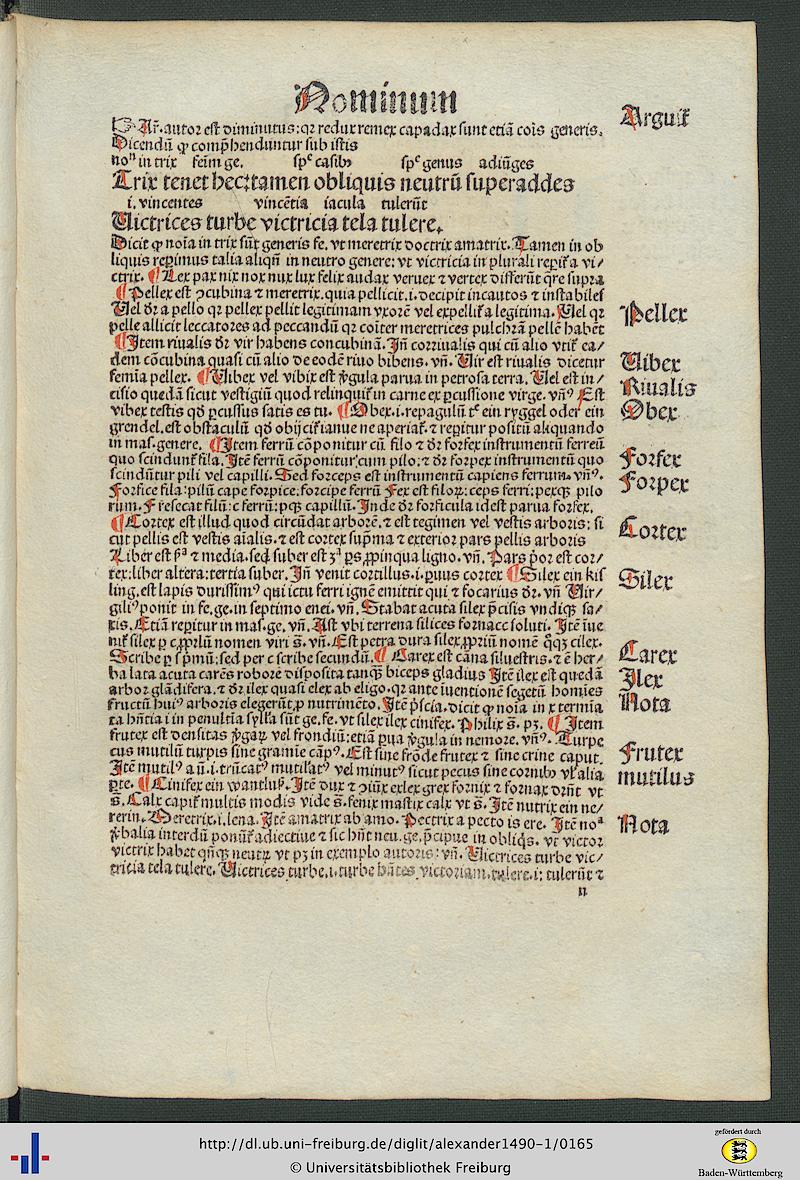 Nominum
Arguit̃
Itē. autor est diminutus: qꝛ redux remex capadax sunt etiã cõis generis.
Dicendũ ꝙ comp̃henduntur sub istis
noⁿ in trix feĩm ge. spᵉ casibꝫ spᵉ genus adiũges
Trix tenet hec: tamen obliquis neutrũ superaddes
i. vincentes vincẽtia iacula tulerũt
Uictrices turbe victricia tela tulere.
Dicit ꝙ noĩa in trix sũt generis fe. vt meretrix doctrix amatrix. Tamen in ob
liquis reperimus talia aliqñ in neutro genere: vt victricia in plurali reperit̃ a vi/
ctrix. ¶ Lex pax nix nox nux lux felix audax veruex ⁊ vertex differũt q̃re supra
¶ Pellex est ↄcubina ⁊ meretrix. quia pellicit. i. decipit incautos ⁊ instabiles
Uel dr̃ a pello qꝛ pellex pellit legitimam vxorẽ vel expellit̃ a legitima. Uel qꝛ
Pellex
pelle allicit leccatores ad peccandũ qꝛ cõiter meretrices pulchrã pellẽ habẽt
¶ Item riualis dr̃ vir habens concubinã. Jñ corriualis qui cũ alio vtit̃ ea/
dem cõcubina quasi cũ alio de eodẽ riuo bibens. vñ. Uir est riualis dicetur
Uibex
femĩa pellex. ¶ Uibex vel vibix est ꝟgula parua in petrosa terra. Uel est in/
cisio quedã sicut vestigiũ quod relinquit̃ in carne ex ꝑcussione virge. vñꝰ. Est
Riualis
vibex testis qđ ꝑcussus satis es tu. ¶ Obex. i. repagulũ tc̃ ein ryggel oder ein
Obex
grendel. est obstaculũ qđ obijcit̃ ianue ne aperiat̃. ⁊ reperitur positũ aliquando
in mas. genere. ¶ Item ferrũ cõponitur cũ filo ⁊ dr̃ forfex instrumentũ ferreũ
quo scindunt̃ fila. Itẽ ferrũ cõponitur cum pilo: ⁊ dr̃ forpex instrumentũ quo
Forfex
scindũtur pili vel capilli. Sed forceps est instrumentũ capiens ferrum. vñꝰ.
Forfice fila: pilũ cape forpice. forcipe ferrũ Fex est filoꝝ: ceps ferri: pexqꝫ pilo
Forpex
rum. F resecat filũ: c ferrũ: pqꝫ capillũ. Inde dr̃ forficula id est parua forfex.
¶ Cortex est illud quod circũdat arborẽ. ⁊ est tegimen vel vestis arboris: si
cut pellis est vestis aĩalis. ⁊ est cortex sup̃ma ⁊ exterior pars pellis arboris
Cortex
Liber est sᵃ ⁊ media. sed suber est 3ᵃ ꝑs ꝓpinqua ligno. vñ. Pars p̃or est cor/
tex: liber altera: tertia suber. Jñ venit cortillus. i. ꝑuus cortex ¶ Silex ein kis
Silex
ling. est lapis durissimꝰ qui ictu ferri ignẽ emittit qui ⁊ focarius dr̃. vñ Uir/
giliꝰ ponit in fe. ge. in septimo enei. vñ. Stabat acuta silex p̃cisis vndiqꝫ sa/
xis. Etiã reperitur in mas. ge. vñ. Ast vbi terrena silices fornace soluti. Itẽ iue
nit̃ silex ꝑ c ꝓpriũ nomen viri s̃. vñ. Est petra dura silex. ꝓpriũ nomẽ q̃qꝫ cilex.
Scribe ꝑ s p̃mũ: sed per c scribe secundũ. ¶ Carex est cãna siluestris. ⁊ ẽ her/
Carex
ba lata acuta carẽs robore disposita tanqꝫ biceps gladius Itẽ ilex est quedã
Ilex
arbor glãdifera. ⁊ dr̃ ilex quasi elex ab eligo. qꝛ ante ĩuentionẽ segetũ homĩes
fructũ huiꝰ arboris elegerũt ꝓ nutrimẽto. Itẽ p̃scia. dicit ꝙ noĩa in x termĩa
Nota
ta hñtia i in penultĩa sylľa sũt ge. fe. vt silex ilex cinifex. Philix s̃. pꝫ. ¶ Item
frutex est densitas ꝟgaꝝ vel frondiũ: etiã ꝑua ꝟgula in nemore. vñꝰ. Turpe
Frutex
cus mutilũ turpis sine gramĩe cãpꝰ. Est sine frõde frutex ⁊ sine crine caput.
mutilus
Itẽ mutilꝰ a ũ. i. trũcatꝰ mutilatꝰ vel minutꝰ sicut pecus sine cornibꝰ vľ alia
ꝑte. ¶ Cinifex ein wantluß. Itẽ dux ⁊ ↄiũx exlex grex fornix ⁊ fornax dr̃nt vt
s̃. Calx capit̃ multis modis vide s̃. fenix mastix calx vt s̃. Itẽ nutrix ein ne/
rerin. Meretrix. i. lena. Itẽ amatrix ab amo. Pectrix a pecto is ere. Itẽ noᵃ
Nota
ꝟbalia interdũ ponũt̃ adiectiue ⁊ sic hñt neu. ge. p̃cipue in obliq̃s. vt victor
victrix habet qñqꝫ neutꝝ vt pꝫ in exemplo autoris: vñ. Uictrices turbe vic/
tricia tela tulere. Uictrices turbe. i. turbe hñtes victoriam. tulere. i. tulerũt ⁊
n
http://dl.ub.uni-freiburg.de/diglit/alexander1490-1/0165
© Universitätsbibliothek Freiburg
gefördert durch
Baden-Württemberg